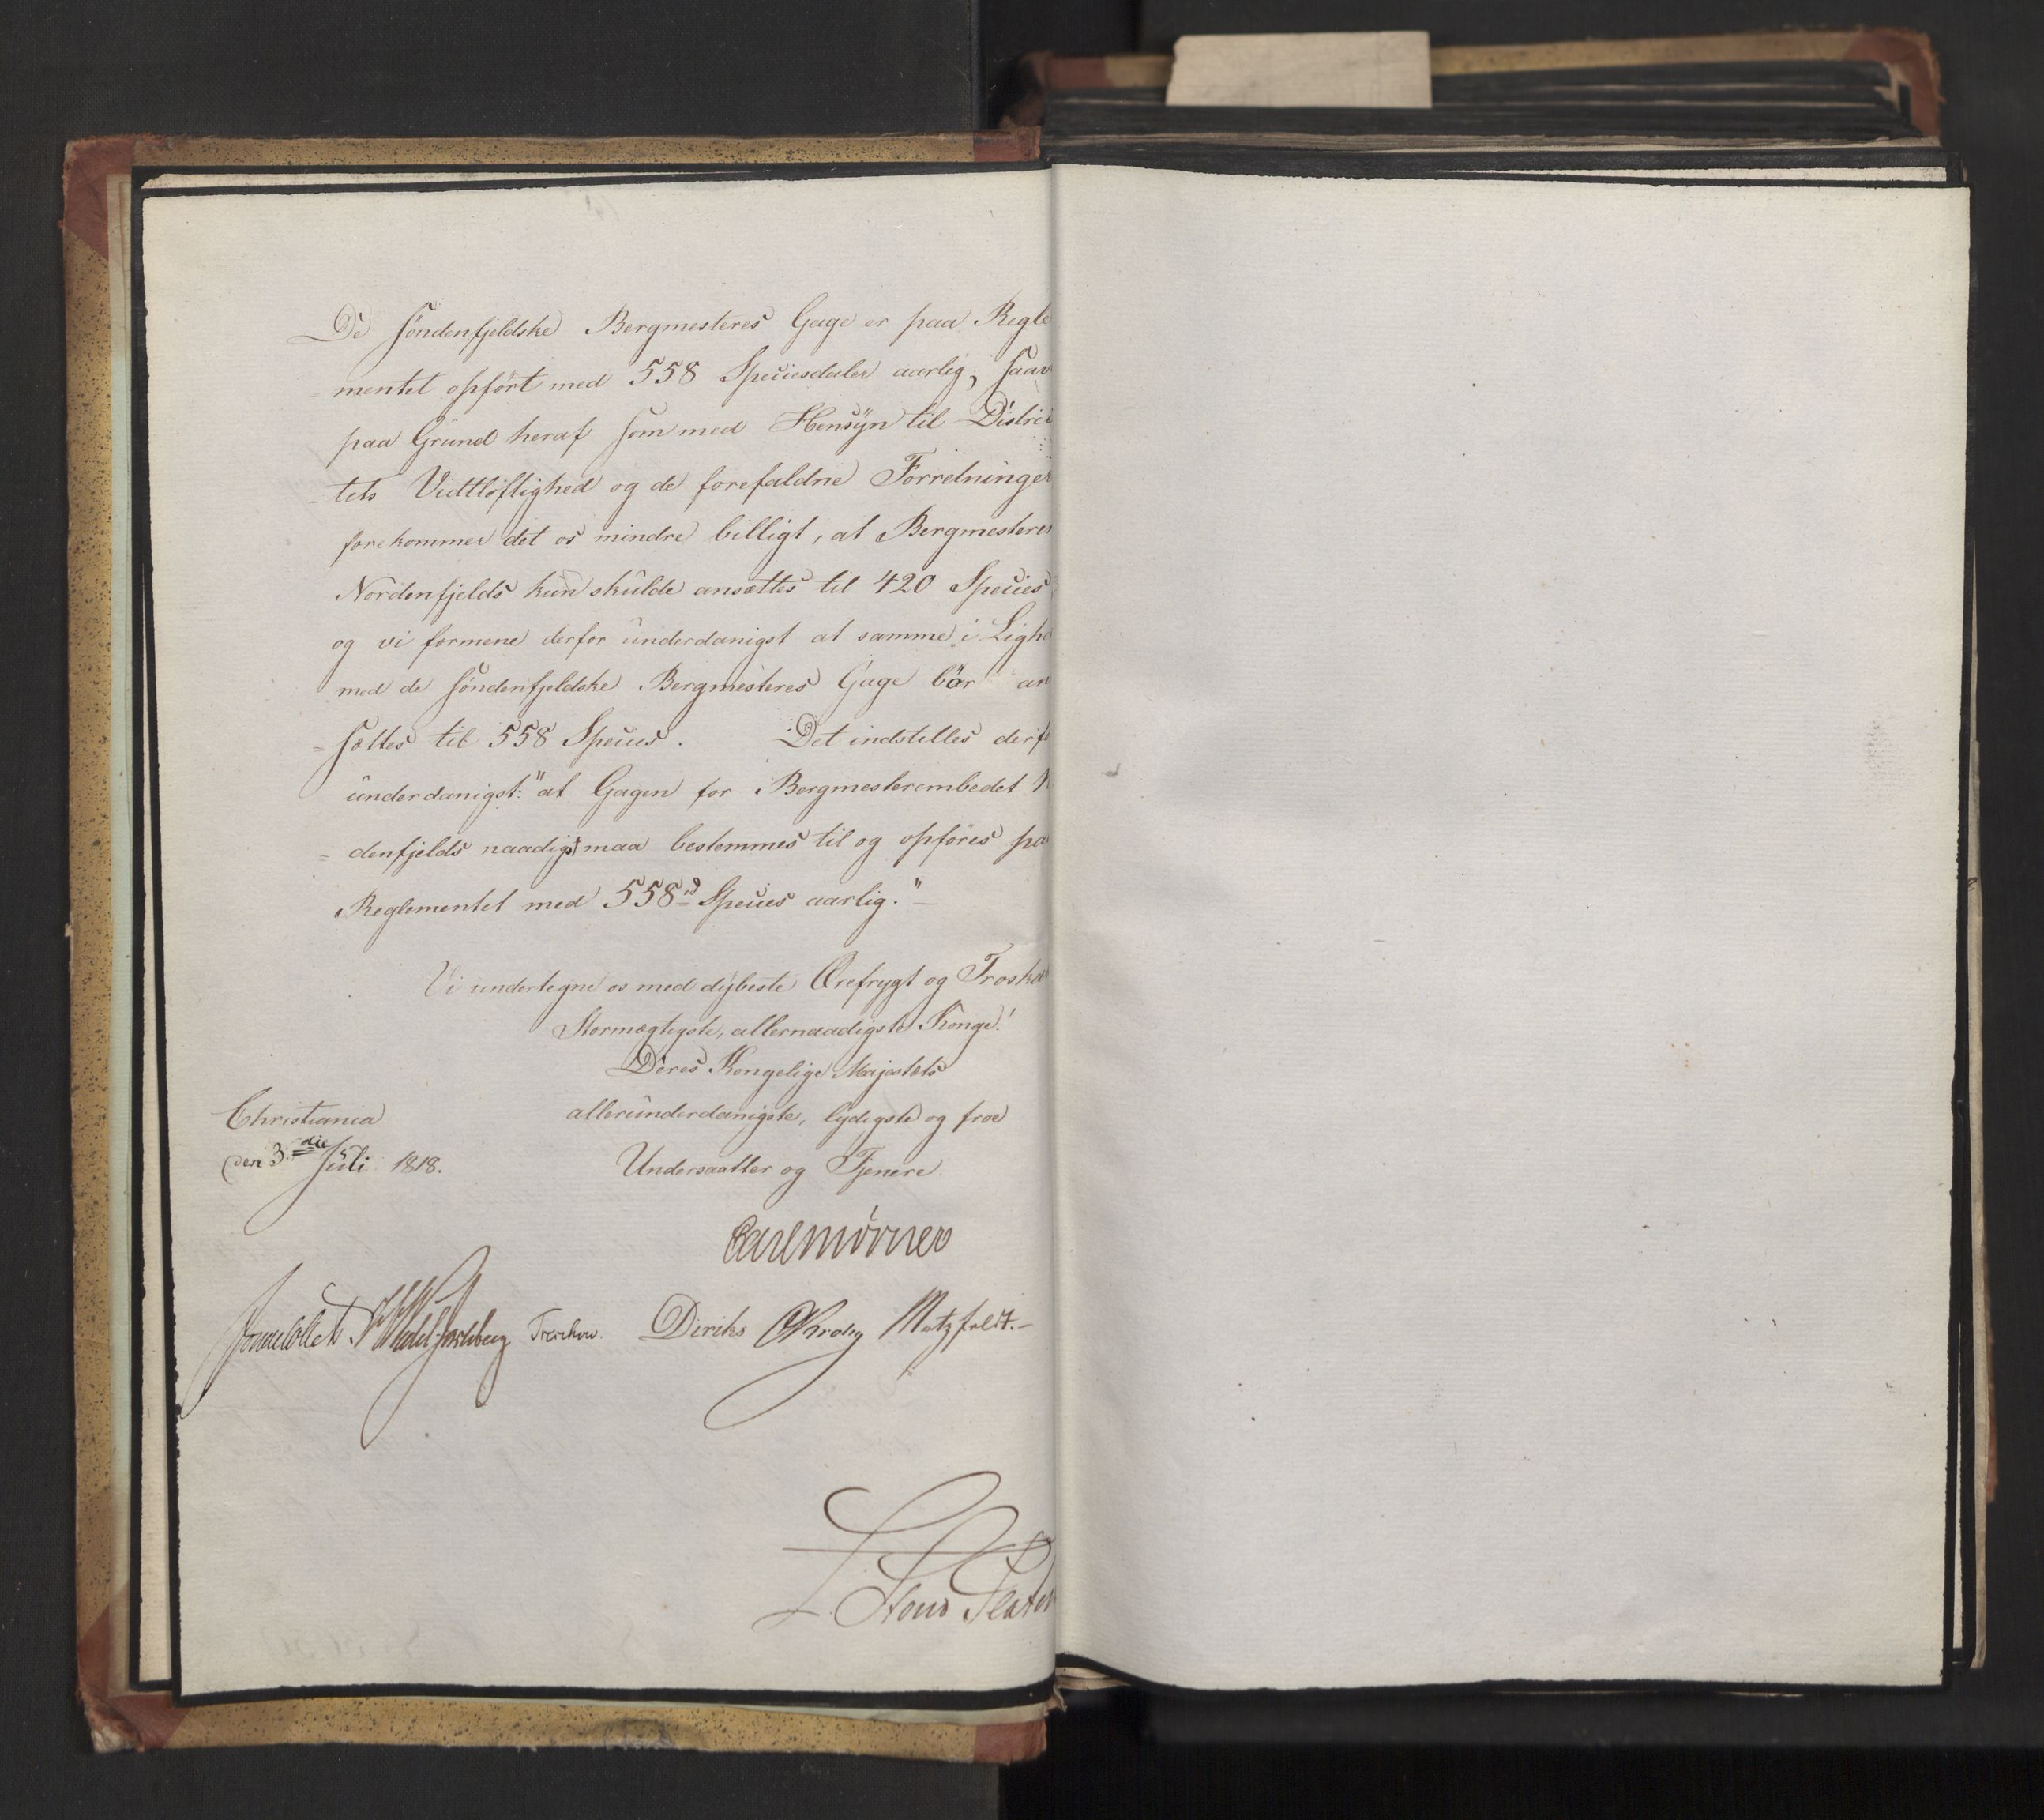 De Söndenfjeldske Bergmesteres Gage er paa Regle
mentet opført med 558 Speciesdaler aarlig, saav
paa Grund heraf som med Hensyn til Distric
= tets Vidtløftighed og de forefaldne Forretninger
forekommer det os mindre billigt, at Bergmesteren
Nordenfjelds kun skulde ansættes til 420 Species
og vi formene derfor underdanigst at samme i Lighe
med de Söndenfjeldske Bergmesteres Gage bör an
= sættes til 558 Species. Det indstilles derfo
underdanigst: "at Gagen for Bergmesterembedet N
= denfjelds naadigst maa bestemmes til og opføres pa
Reglementet med 558 d Species aarlig." —
Vi undertegne os med dybeste Ærefrygt og Troska
Stormægtigste, allernaadigste Konge!
Deres Kongelige Majestæts
allerunderdanigste, lydigste og troe
Undersaatter og Tjenere.
Christiania
den 3die Juli 1818.
Carl Mörner
Jonas Collett H Wedel Jarlsberg Treschow. Diriks Krohg Motzfeldt. —